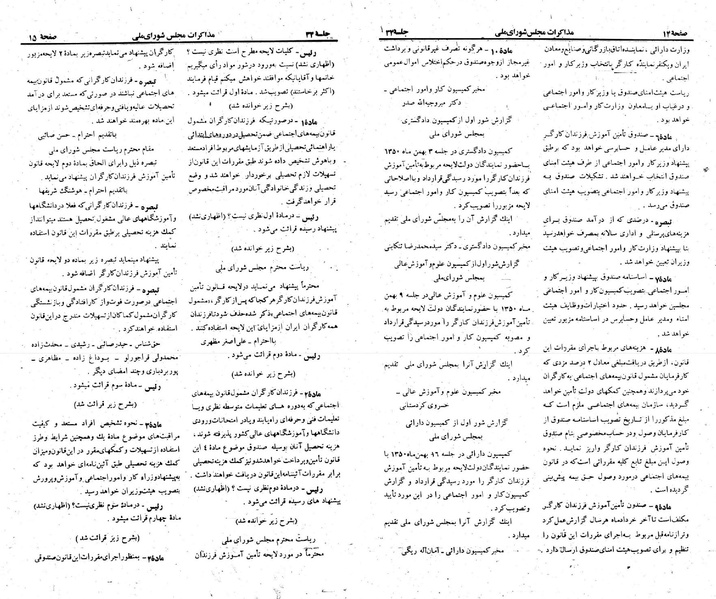 صفحهٔ ۱۴ مذاکرات مجلس شورای ملی جلسهٔ ۳۳
وزارت دارائی ، نماینده اتاق بازرگانی و صنایع و معادن
ایران و یکنفر نماینده کارگر بانتخاب وزیر کار و امور
اجتماعی .
ریاست هیئت امنای صندوق با وزیر کار و امور اجتماعی
و در غیاب او با معاون وزارت کار و امور اجتماعی
خواهد بود .
ماده۶ـ صندوق تأمین آموزش فرزندان کارگر
دارای مدیر عامل و حسابرسی خواهد بود که برطق
پیشنهاد وزیر کار و امور اجتماعی از طرف هیئت امنای
صندوق انتخاب خواهند شد . تشکیلات صندوق به
پیشنهاد وزیر کار و امور اجتماعی بتصویب هیئت امنای
صندوق میرسد .
تبصره ـ درصدی که از درآمد صندوق برای
هزینه‌های پرسنلی و اداری سالانه بمصرف خواهد رسید
بنا بپیشنهاد وزارت کار و امور اجتماعی و تصویب هیئت
وزیران تعیین خواهد شد .
ماده۷ـ اساسنامه صندوق پیشنهاد وزیر کار و
امور اجتماعی بتصویب کمیسیونهای مربوط
مجلسین خواهد رسید . حدود اختیارات و وظایف هیئت
امناء و مدیر عامل و حسابرس در اساسنامه مزبور تعیین
خواهد شد .
ماده۸ـ هزینه‌های مربوط باجرای مقررات این
قانون ، از طریق دریافت مبلغی معادل ۲ درصد مزدی که
کارفرمایان مشمول قانون بیمه‌های اجتماعی به کارگران
خود میپردازند و همچنین کمکهای دولت تأمین خواهد
گردید . سازمان بیمه‌های اجتماعی ملزم است که
مبلغ مذکور را از تاریخ تصویب اساسنامه صندوق از
کارفرمایان وصول و در حساب مخصوصی بنام صندوق
تأمین آموزش فرزندان کارگر واریز نماید . نحوه
وصول این مبلغ تابع کلیه مقرراتی است که در قانون
بیمه‌های اجتماعی در مورد وصول حق بیمه پیش‌بینی
گردیده است .
ماده۹ـ صندوق تأمین آموزش فرزندان کارگر
مکلف است تا آخر خرداد ماه هر سال گزارش عمل کرد
و ترازنامه قبل مربوط به اجرای مقررات این قانون را
تنظیم و برای تصویب هیئت امنای صندوق ارسال دارد .
ماده ۱۰ ـ هرگونه تصرف غیرقانونی و برداشت
غیرمجاز از وجوه صندوق در حکم اختلاس اموال عمومی
خواهد بود .
مخبر کمیسیون کار و امور اجتماعی ـ
دکتر میروجیه‌الله صدر
گزارش شور اول از کمیسیون دادگستری
بمجلس شورای ملی
کمیسیون دادگستری در جلسه ۳ بهمن ماه ۱۳۵۰
با حضور نمایندگان دولت لایحه مربوط به تأمین آموزش
فرزندان کارگر را مورد رسیدگی قرار داد و با اصلاحاتی
که بعداً بتصویب کمیسیون کار و امور اجتماعی رسید لایحه
مزبور را تصویب کرد .
اینک گزارش آن را به مجلس شورای ملی تقدیم
میدارد .
مخبر کمیسیون دادگستری ـ دکتر سیدمحمدرضا تنکابنی
گزارش شور اول از کمیسیون علوم و آموزش عالی
بمجلس شورای ملی
کمیسیون علوم و آموزش عالی در جلسه ۹ بهمن
ماه ۱۳۵۰ با حضور نمایندگان دولت لایحه مربوط به
تأمین آموزش فرزندان کارگر را مورد رسیدگی قرار داد
و مصوبه کمیسیون کار و امور اجتماعی را تصویب
کرد .
اینک گزارش آنرا بمجلس شورای ملی تقدیم
میدارد .
مخبر کمیسیون علوم و آموزش عالی ـ
خسروی کردستانی
گزارش شور اول از کمیسیون دارائی
بمجلس شورای ملی
کمیسیون دارائی در جلسه ۱۹ بهمن ماه ۱۳۵۰ با
حضور نمایندگان دولت لایحه مربوط به تأمین آموزش
فرزندان کارگر را مورد رسیدگی قرار داد و گزارش
کمیسیون کار و امور اجتماعی را در این مورد تأیید
و تصویب کرد .
اینک گزارش آنرا به مجلس شورای ملی تقدیم
میدارد .
مخبر کمیسیون دارائی ـ امان‌اله ریگی
جلسهٔ ۳۳ مذاکرات مجلس شورای ملی صفحهٔ ۱۵
رئیس ـ کلیات لایحه مطرح است نظری نیست ؟
(اظهاری نشد) نسبت بورود در شور مواد رأی میگیریم
خانمها و آقایانیکه موافقند خواهش میکنم قیام فرمایند
(اکثر برخاستند) تصویب شد . ماده اول قرائت میشود .
(بشرح زیر خوانده شد)
ماده۱ـ در صورتیکه فرزندان کارگران مشمول
قانون بیمه‌های اجتماعی ضمن تحصیل در دوره‌های ابتدائی
یا راهنمائی تحصیلی از طریق آزمایشهای مربوط افراد مستعد
و باهوش تشخیص داده شوند طبق مقررات این قانون از
تسهیلات لازم تحصیلی برخوردار خواهند شد و وضع
تحصیلی و زندگی خانوادگی آنان مورد مراقبت مخصوص
قرار خواهد گرفت .
رئیس ـ در ماده اول نظری نیست ؟ (اظهاری نشد)
پیشنهاد رسیده قرائت میشود .
(بشرح زیر خوانده شد)
ریاست محترم مجلس شورای ملی
محترماً پیشنهاد می‌نماید در لایحه قانون تأمین
آموزش فرزندان کارگر هر کجا که پس از کارگر «مشمول
قانون بیمه‌های اجتماعی» مذکر شده حذف شود تا فرزندان
همه کارگران ایران از مزایای این لایحه استفاده کنند .
با احترام ـ علی اصغر مظهری
رئیس ـ ماده دوم قرائت میشود .
(بشرح زیر خوانده شد)
ماده۲ـ فرزندان کارگران مشمول قانون بیمه‌های
اجتماعی که به دوره‌های تعلیمات متوسطه نظری و یا
تعلیمات فنی و حرفه‌ای راه یابند و یا در امتحانات ورودی
دانشگاهها و آموزشگاههای عالی کشور پذیرفته شوند ،
هزینه تحصیل آنان بوسیله صندوق موضوع ماده ۴ این
قانون تأمین و پرداخت خواهد شد و نیز کمک هزینه تحصیلی
برابر مقررات آئیننامه این قانون دریافت خواهند داشت .
رئیس ـ در ماده دوم نظری نیست ؟ (اظهاری نشد)
پیشنهاد های رسیده قرائت می‌شود .
(بشرح زیر خوانده شد)
ریاست محترم مجلس شورای ملی
محترماً در مورد لایحه تأمین آموزش فرزندان
کارگران پیشنهاد می‌نماید تبصره زیر بماده ۲ لایحه مزبور
اضافه شود .
تبصره ـ فرزندان کارگرانی که مشمول قانون بیمه
های اجتماعی نباشند در صورتی که مستعد برای درآمد
تحصیلات عالیه و یا فنی و حرفه‌ای تشخیص شوند از مزایای
این ماده بهره‌مند خواهند شد .
با تقدیم احترام ـ حسن صائبی
مقام محترم ریاست مجلس شورای ملی
تبصره ذیل را برای الحاق بماده دوم لایحه قانون
تأمین آموزش فرزندان کارگر پیشنهاد می‌نماید .
با تقدیم احترام ـ هوشنگ شریفها
تبصره ـ فرزندان کارگرانی که فعلا در دانشگاهها
و آموزشگاههای عالی مشغول تحصیل هستند میتوانند از
کمک هزینه تحصیلی برطبق مقررات این قانون استفاده
نمایند .
پیشنهاد مینماید تبصره زیر بماده دو لایحه قانون
تأمین آموزش فرزندان کارگر اضافه شود .
تبصره ـ فرزندان کارگران مشمول قانون بیمه‌های
اجتماعی در صورت فوت و از کار افتادگی و بازنشستگی
کارگران مشمول کماکان از تسهیلات مندرج در این قانون
استفاده خواهند کرد .
حق‌شناس ـ حیدر صائبی ـ رشیدی ـ محدث‌زاده
محمدولی قراچورلو ـ بوداغ زاده ـ مظاهری ـ
پوربردباری و چند امضای دیگر .
رئیس ـ ماده سوم قرائت میشود .
(بشرح زیر قرائت شد)
ماده۳ـ نحوه تشخیص افراد مستعد و کیفیت
مراقبت‌های موضوع ماده یک و همچنین شرایط و طرز
استفاده از تسهیلات و کمکهای مقرر در این قانون و میزان
کمک هزینه تحصیلی طبق آئین‌نامه‌ای خواهد بود که
به پیشنهاد وزرای کار و امور اجتماعی و آموزش و پرورش
بتصویب هیئت وزیران خواهد رسید .
رئیس ـ در ماده سوم نظری نیست؟ (اظهاری نشد)
ماده چهارم قرائت میشود .
(بشرح زیر قرائت شد)
ماده۴ـ بمنظور اجرای مقررات این قانون صندوقی